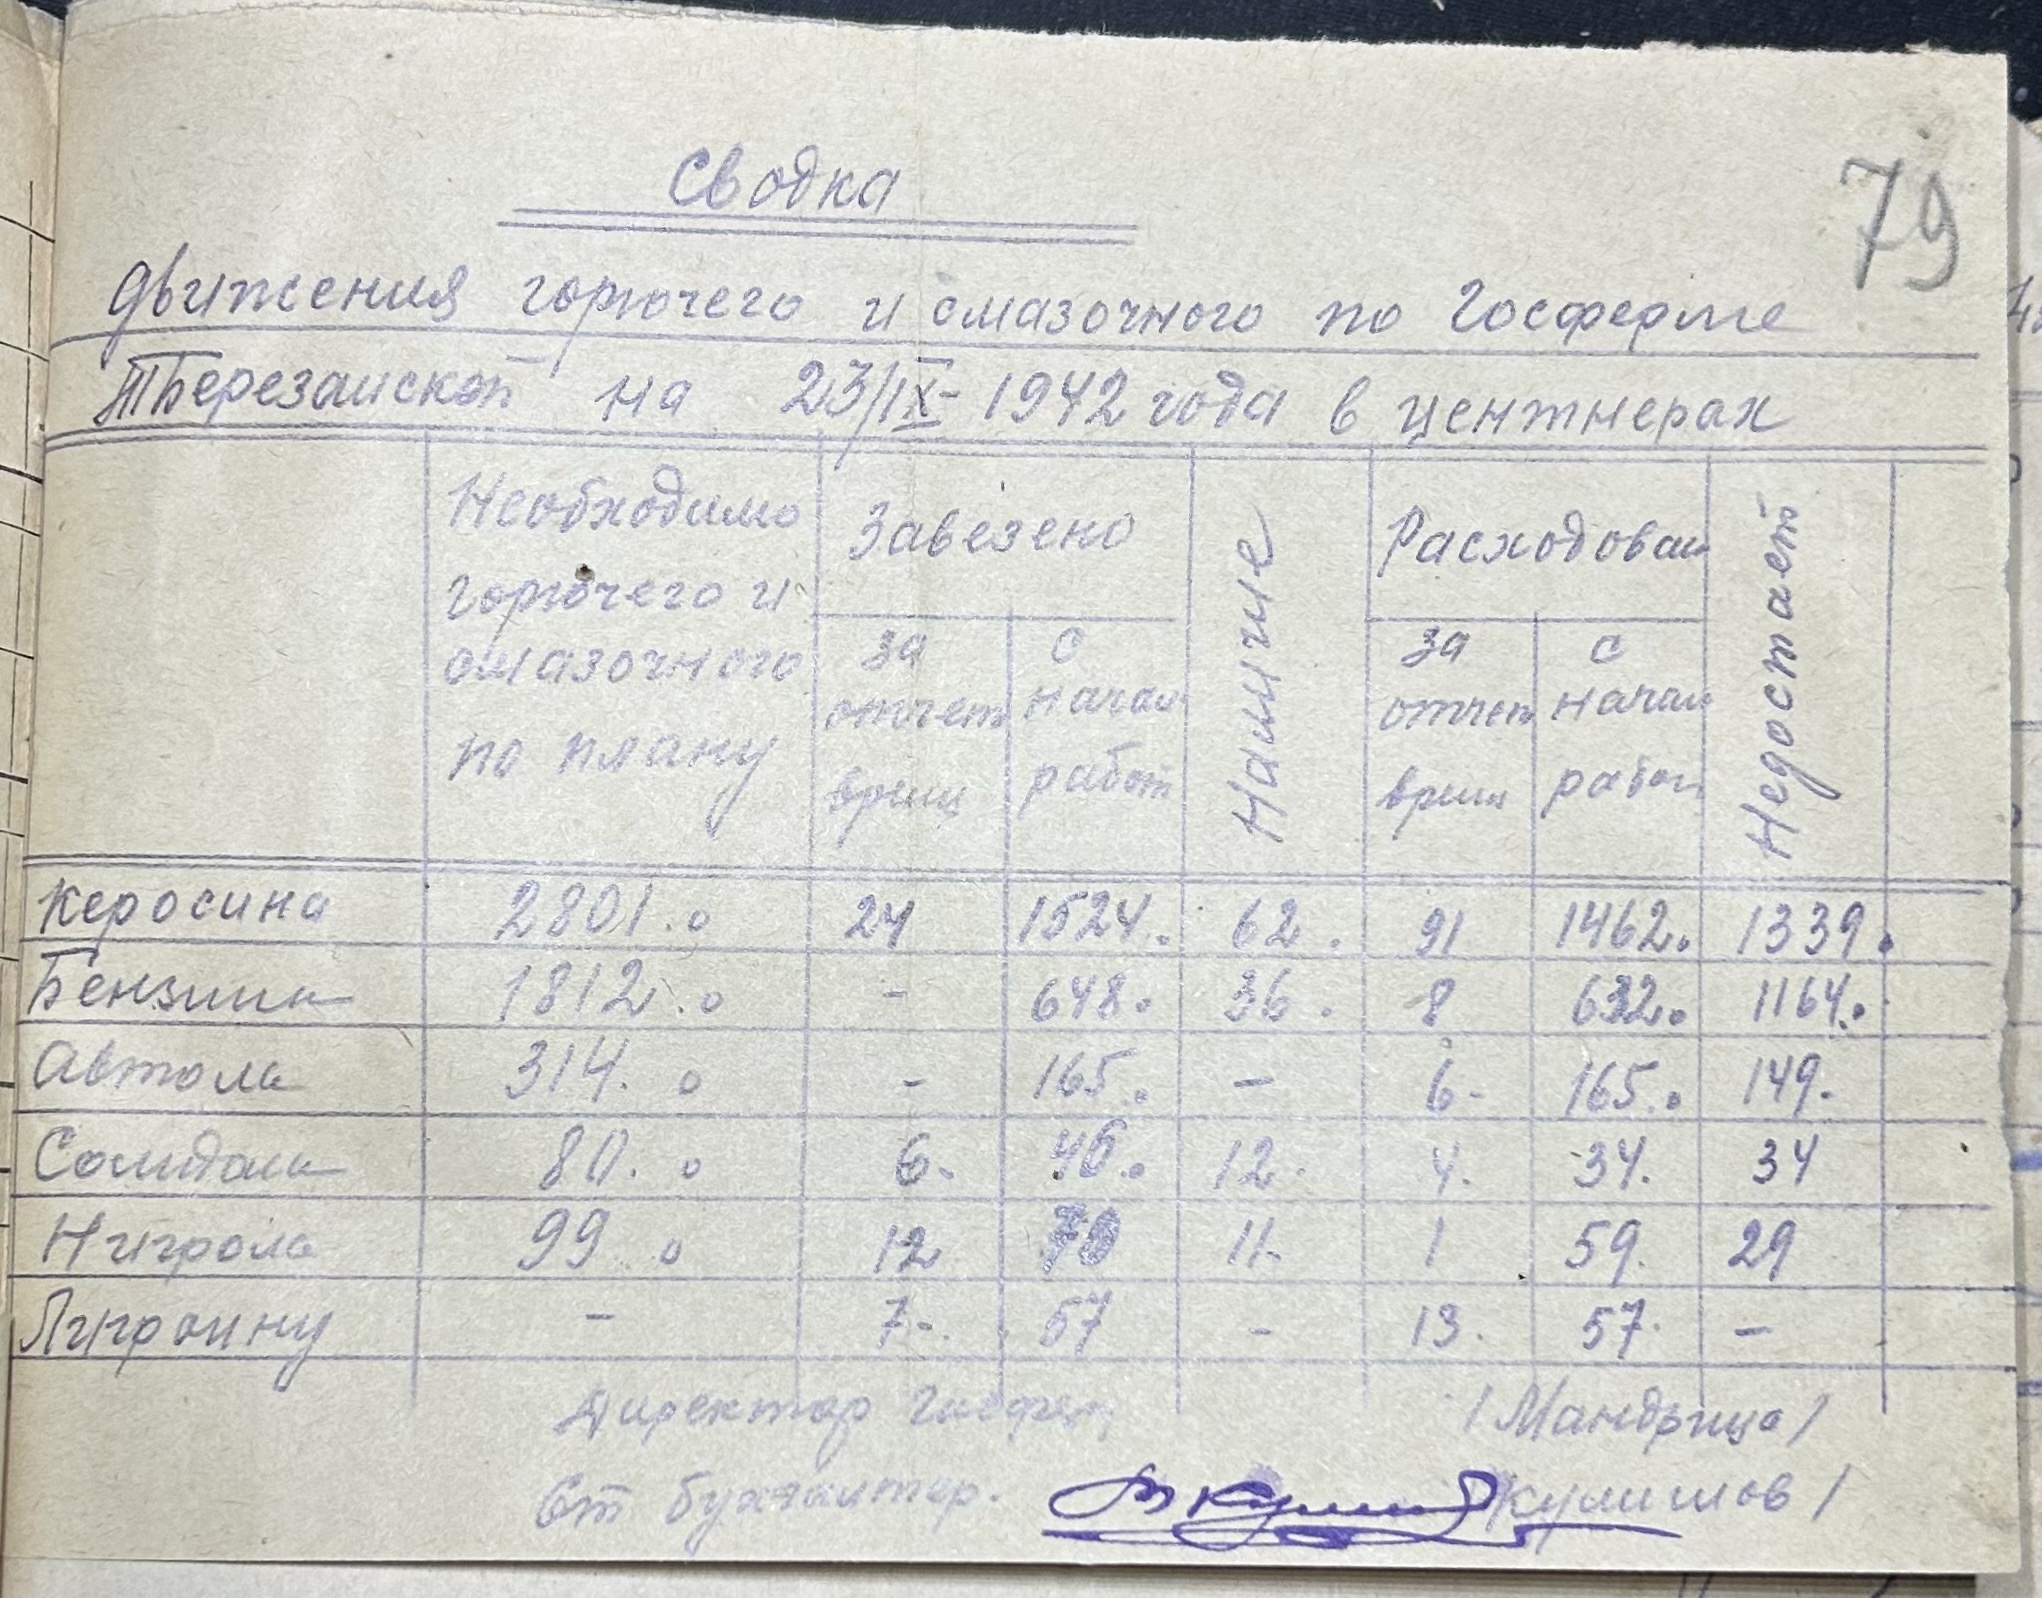 79
Сводка
движения горючего и смазочного по Госферме
Березанской на 23/IX-1942 года в центнерах
Необходимо горючего и смазочного по плану
Завезено
за отчет время
с начал работ
Наличие
Расходован
за отчет время
с начал работ
Недостает
Керосина 2801.0 24 1524. 62. 91 1462. 1339.
Бензина 1812.0 - 648. 36. 8 632. 1164.
Автола 314.0 - 165. - 6- 165. 149.
Солидола 80.0 6. 46. 12. 4. 34. 34
Нигрола 99 0 12 70 11. 1 59. 29
Лигроину - 7-. 57 - 13. 57. -
Директор Госферм /Мандрыца/
Ст бухгалтер. /Кулишов/